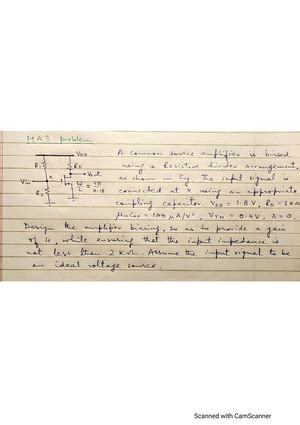 HA3 Problem
VDD
R1
RD
Vout
x
Vin
W/L = 10/0.18
R2
A common source amplifier is biased
using a Resistive divider arrangement,
as shown in fig. The input signal is
connected at x using an appropriate
coupling capacitor. VDD = 1.8V, RD = 1kΩ
μnCox = 100 μA/V², VTH = 0.4V, λ=0.
Design the amplifier biasing, so as to provide a gain
of 4, while ensuring that the input impedance is
not less than 2 kΩ. Assume the input signal to be
an ideal voltage source.
Scanned with CamScanner